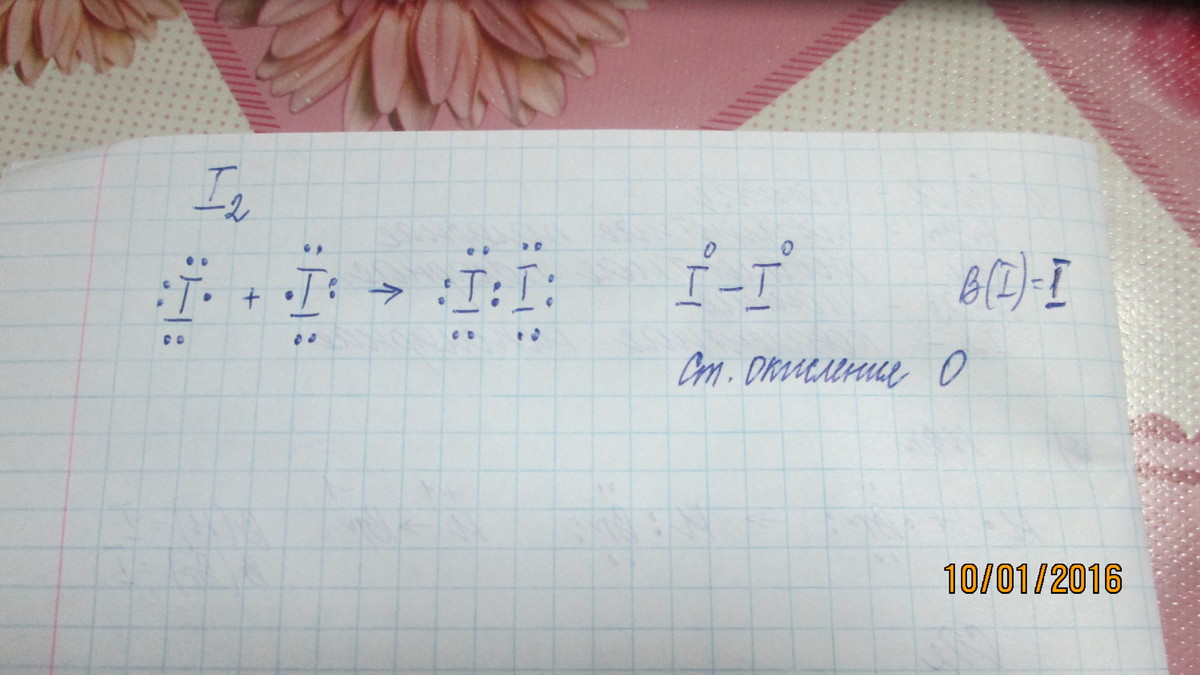 I₂
:Ï· + ·Ï: → :Ï:Ï: I⁰–I⁰ В(I)=I
Ст. окисления 0
10/01/2016